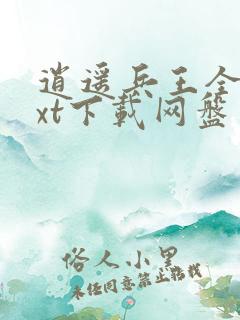 逍遥兵王全
xt下載网盤
俗人小黑
未经同意禁止转载